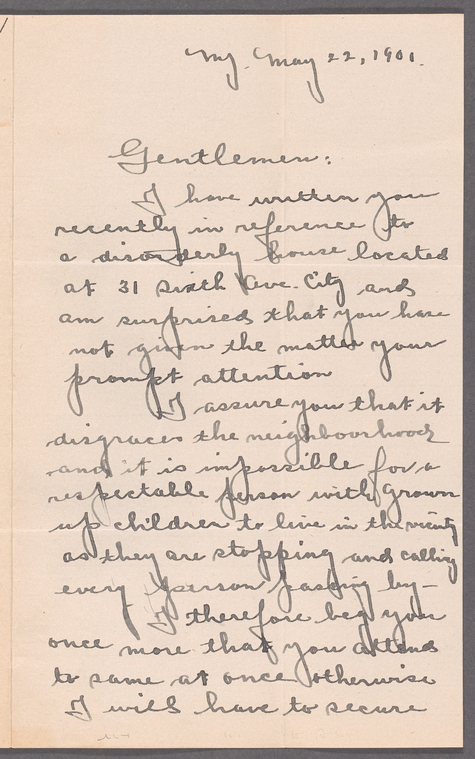 NY. May 22, 1901.
Gentlemen:
I have written you
recently in reference to
a disorderly house located
at 31 Sixth Ave. City and
am surprised that you have
not given the matter your
prompt attention
I assure you that it
disgraces the neighbourhood
and it is impossible for a
respectable person with grown
up children to live in the vicinity
as they are stopping and calling
every person passing by—
I therefore beg you
once more that you attend
to same at once otherwise
I will have to secure